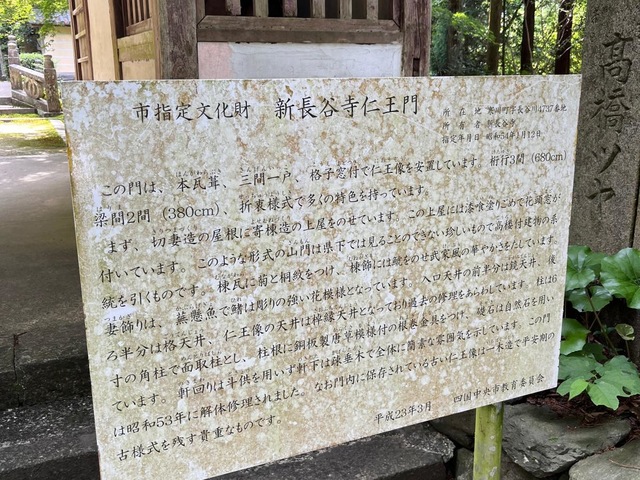 市指定文化財 新長谷寺仁王門
所在地 寒川町字長谷川4737番地
所有者 新長谷寺
指定年月日 昭和54年1月12日
この門は、本瓦葺、三間一戸、格子窓付で仁王像を安置しています。桁行3間(680cm)
梁間2間(380cm)、折衷様式で多くの特色を持っています。
まず、切妻造の屋根に寄棟造の上屋をのせています。この上屋には漆喰塗りごめで花頭窓が
付いています。このような形式の山門は県下では見ることのできない珍しいもので高楼付建物の系
統を引くものです。棟瓦に菊と桐紋をつけ、棟飾には鯱をのせ武家風の華やかさをだしています。
妻飾りは、蕪懸魚で鰭は彫りの強い花模様となっています。入口天井の前半分は鏡天井、後
ろ半分は格天井、仁王像の天井は棹縁天井となっており過去の修理をあらわしています。柱は6
寸の角柱で面取柱とし、柱根に銅板製唐草模様付の根巻金具をつけ、礎石は自然石を用い
ています。軒回りは斗供を用いず軒下は疎垂木で全体に簡素な雰囲気を示しています。この門
は昭和53年に解体修理されました。なお門内に保存されている古い仁王像は一木造で平安期の
古様式を残す貴重なものです。
平成23年3月 四国中央市教育委員会
高橋ツヤ